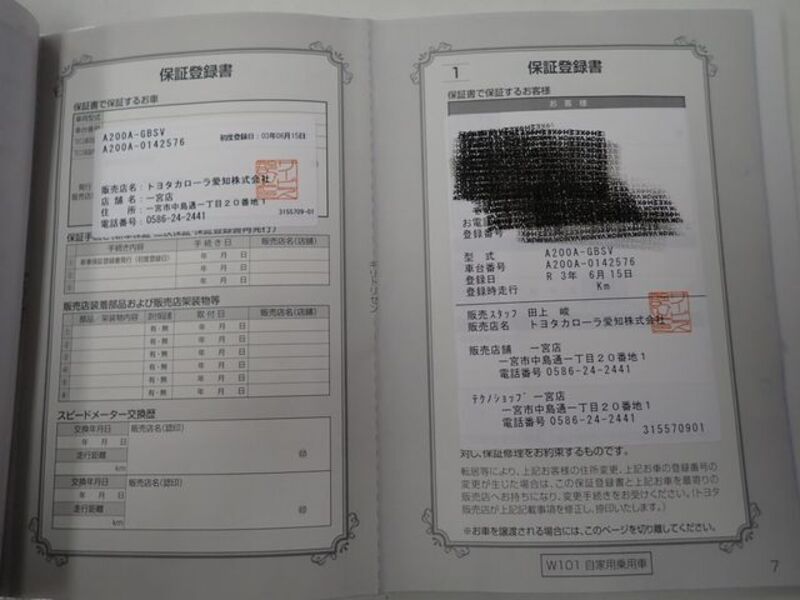 保証登録書
保証書で保証するお車
車両型式
車台番号
A200A-GBSV
初度登録日:03年06月15日
A200A-0142576
販売店名:トヨタカローラ愛知株式会社
店舗名:一宮店
住所:一宮市中島通一丁目20番地1
電話番号:0586-24-2441
3155709-01
手続き内容
手続き日
販売店名(店舗)
新車保証登録書発行(初度登録日)
年 月 日
年 月 日
年 月 日
販売店装着部品および販売店架装物等
部品/架装物内容
添付保証書
取付日
販売店名(店舗)
有・無 年 月 日
有・無 年 月 日
有・無 年 月 日
有・無 年 月 日
有・無 年 月 日
スピードメーター交換歴
交換年月日
販売店名(認印)
年 月 日
走行距離
km
㊞
交換年月日
販売店名(認印)
年 月 日
走行距離
km
㊞
キリトリセン
1
保証登録書
保証書で保証するお客様
お客様
お電話
登録番号
型式 A200A-GBSV
車台番号 A200A-0142576
登録日 R 3年 6月15日
登録時走行 Km
販売スタッフ 田上 峻
販売店名 トヨタカローラ愛知株式会社
販売店舗 一宮店
一宮市中島通一丁目20番地1
電話番号 0586-24-2441
テクノショップ 一宮店
一宮市中島通一丁目20番地1
電話番号 0586-24-2441
315570901
対し、保証修理をお約束するものです。
転居等により、上記お客様の住所変更、上記お車の登録番号の
変更が生じた場合は、この保証登録書と上記お車を最寄りの
販売店へお持ちになり、変更手続きをお受けください。(トヨタ
販売店が上記記載事項を修正し、捺印いたします。)
※お車を譲渡される場合には、このページを切り離してください。
W101 自家用乗用車
7